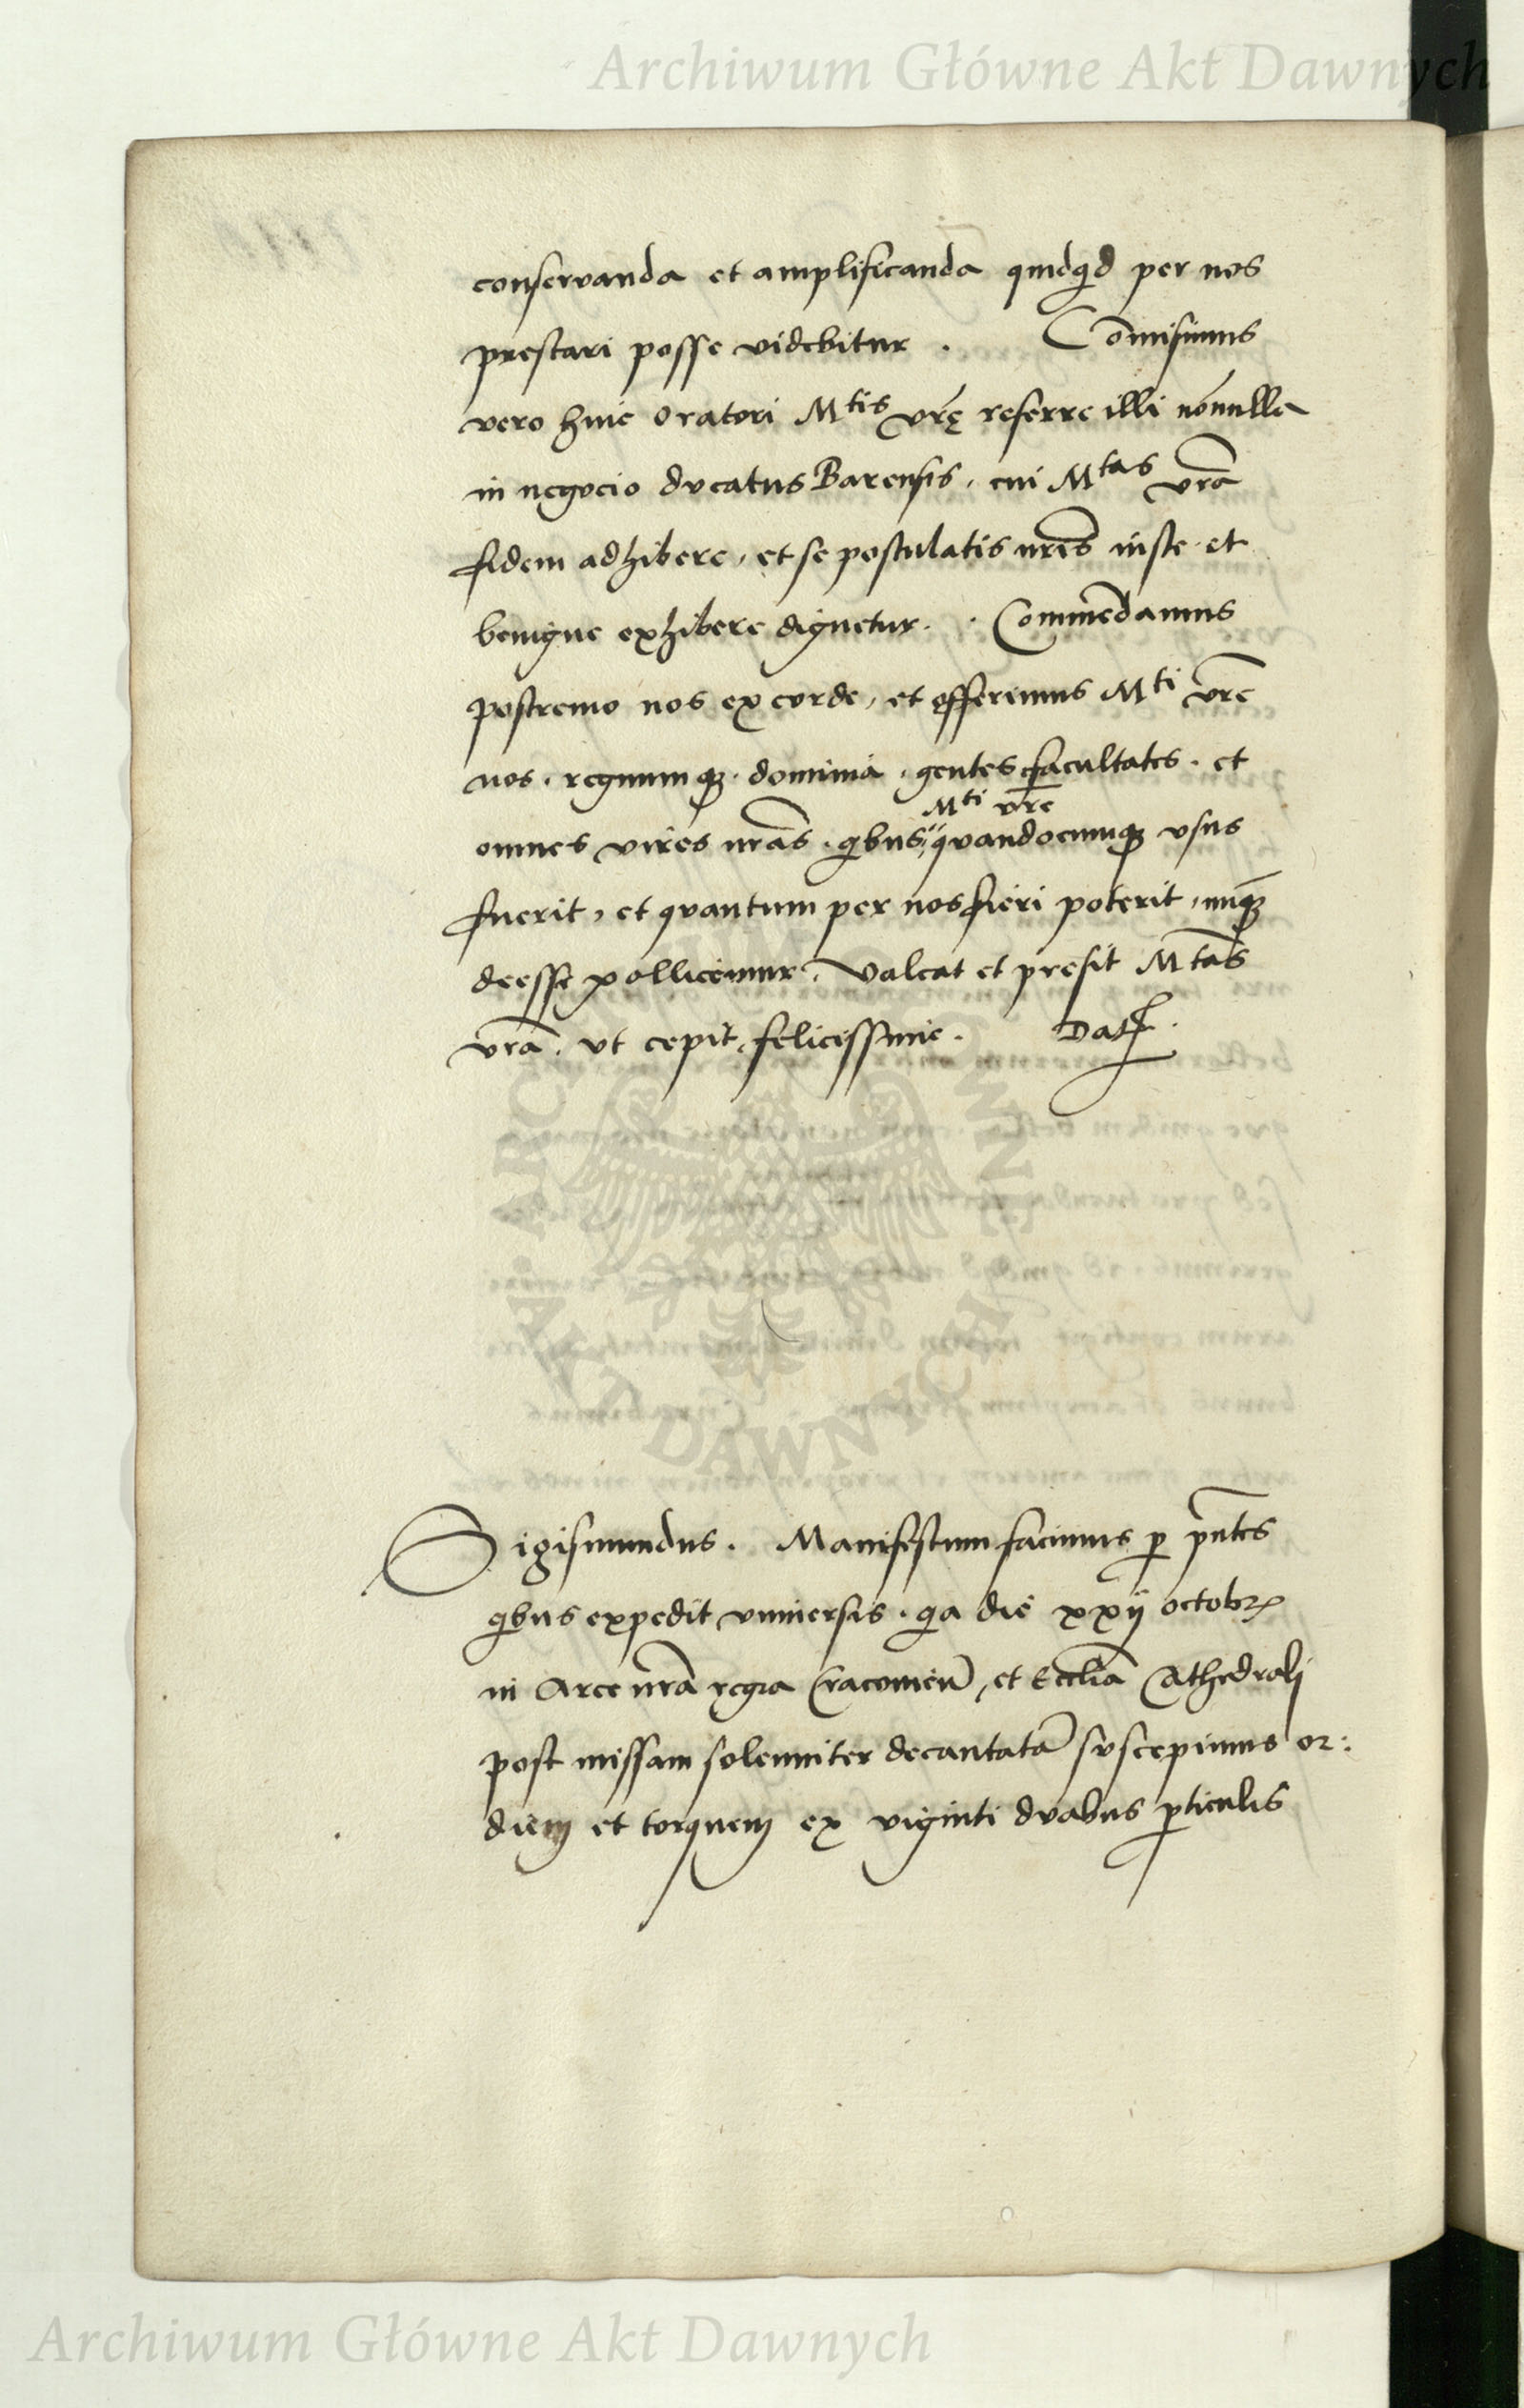 Archiwum Główne Akt Dawnych
conservanda et amplificanda quidqd per nos
prestari posse videbitur . Cōmisimus
vero huic oratori Mtis vrę referre illi nōnulla
in negocio ducatus Barensis , cui Mtas vrā
fidem adhibere , et se postulatis nrīs iuste et
benigne exhibere dignetur . Commēdamus
postremo nos ex corde , et offerimus Mti vrē
nos . regnumq3 . dominia . gentes facultates . et
Mti vrē
omnes vires nrās . qbus quandocumq3 usus
fuerit , et quantum per nos fieri poterit , nūq3
deesse pollicemur . Valeat et presit Mtās
vrā . ut cepit felicissime . Dat
ARCHIWUM GŁÓWNE AKT DAWNYCH
Sigismundus . Manifestum facimus p pn̄tes
qbus expedit universis . qa die xxij octobr
in Arce nrā regia Cracovien̄ , et Eccliā Cathedrali
post missam solenniter decantatā suscepimus or:
diem et torquem ex viginti duabus pticulis
Archiwum Główne Akt Dawnych